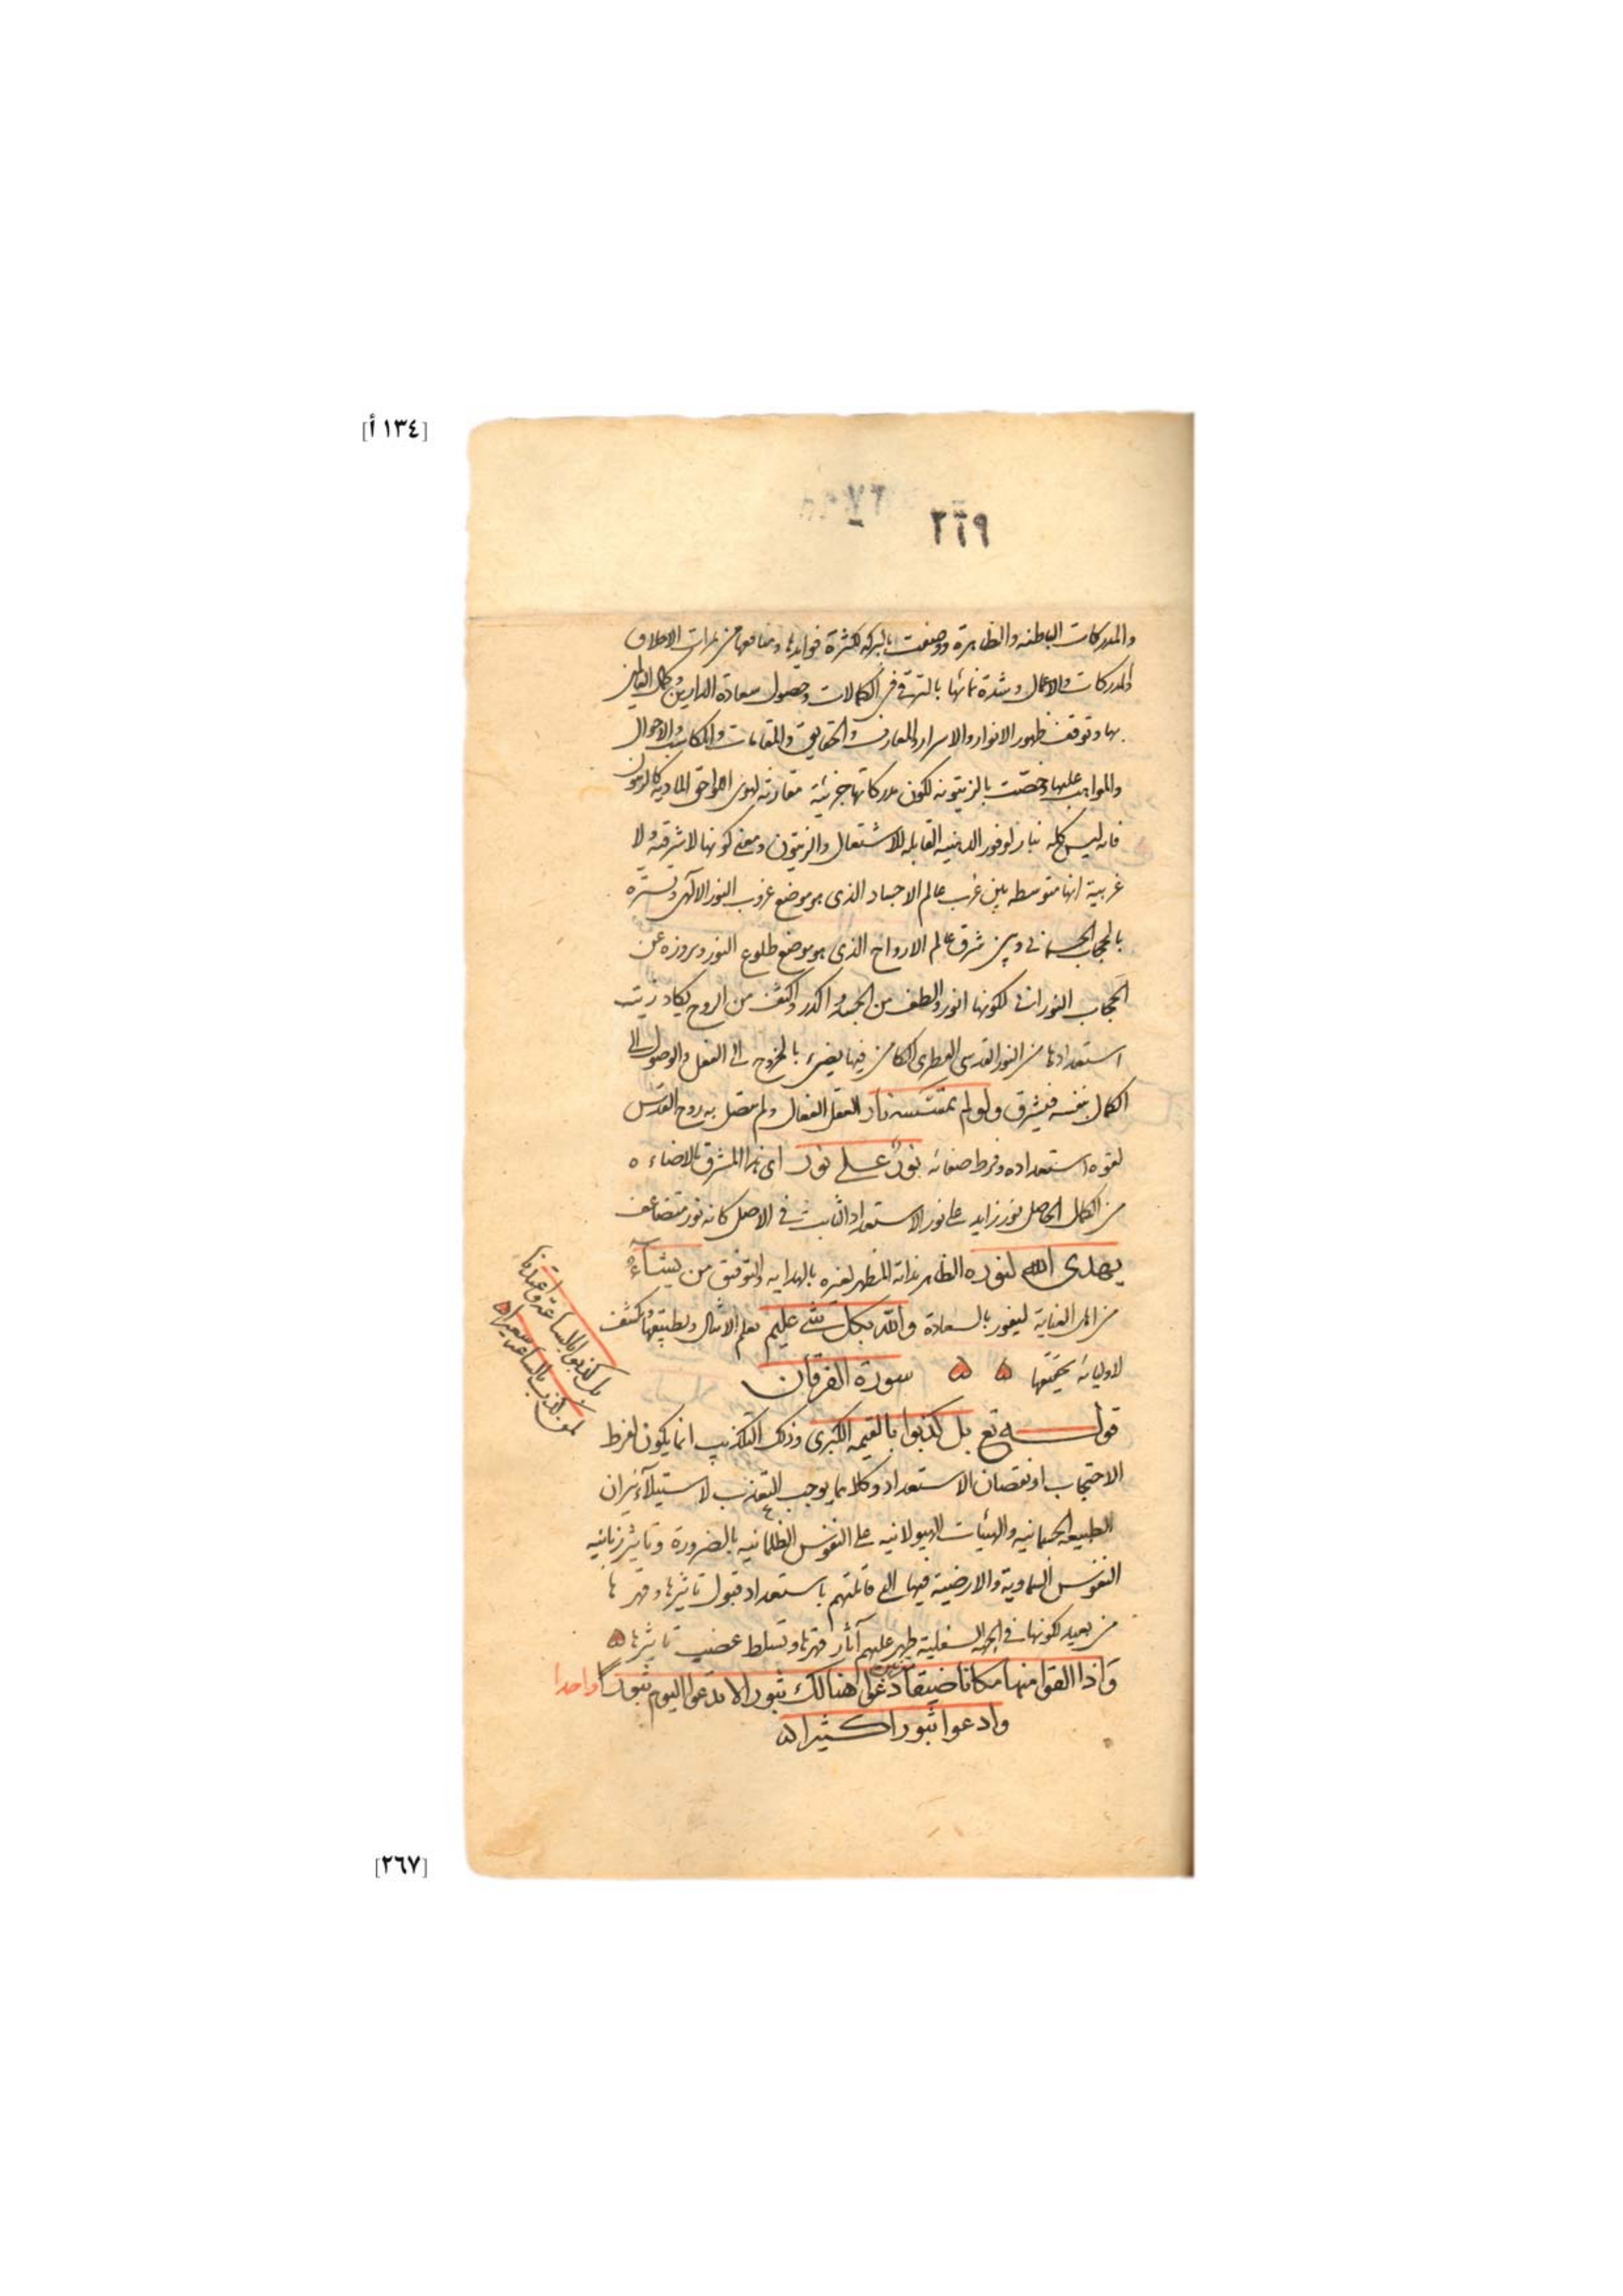 [١٣٤ أ]
٢٦٩
والمدركات الباطنه والظاهرة ووصفت بالبركه لكثرة فوايدها ومنافعها من ثمرات الاخلاق
والمدركات والاعمال وشدة نمائها بالترقى فى الكمالات وحصول سعادة الدارين وكمال العالمين
بها وتوقف ظهور الانوار والاسرار والمعارف والحقايق والمقامات والمكاسب والاحوال
والمواهب عليها وخصت بالزيتونه لكون مدركاتها جزئية مقارنه لنوى اللواحق الماديه كالزيتون
فانه ليس كله نبار لوفور الدهنيه القابله للاشتعال والزيتون ومعنى كونها لا شرقية ولا
غربية انها متوسطه بين غرب عالم الاجساد الذى هو موضع غروب النور الالهى وتستره
بالحجاب الجسمانى وبين شرق عالم الارواح الذى هو موضع طلوع النور وبروزه عن
الحجاب النورانى لكونها انور والطف من الجسد واكدر واكثف من الروح يكاد زيت
استعدادها من النور القدسى الفطرى الكامن فيها يضىء بالخروج الى الفعل والوصول الى
الكمال بنفسه فيشرق ولو لم تمسسه نار العقل الفعال ولم يتصل به روح القدس
لقوه استعداده وفرط صفائه نور على نور اى هذا المشرق بالاضاءه
من الكمال الحاصل نور زايد على نور الاستعداد الثابت فى الاصل كانه نور متضاعف
يهدى الله لنوره الظاهر بذاته المظهر لغيره بالهدايه والتوفيق من يشآء
من اهل العناية ليفوز بالسعادة والله بكل شئ عليم يعلم الامثال وتطبيقها ويكشف
لاوليائه تحقيقها ۵ ۵ سورة الفرقان
قوله تع بل كذبوا بالقيمه الكبرى وذلك التكذيب انما يكون لفرط
الاحتجاب او نقصان الاستعداد وكلاهما يوجب التعذيب لاستيلآء نيران
الطبيعه الجسمانيه والهيئات الهيولانيه على النفوس الظلمانيه بالضرورة وتاثير زبانيه
النفوس السماوية والارضية فيها التى قابلتهم باستعداد قبول تاثيرها وقهرها
من بعيد لكونها فى الجهة السفلية ظهر عليهم آثار قهرها وتسلط غضب تاثيرها ۵
واذا القوا منها مكانا ضيقا مقرنين دعوا هنالك ثبورا لا تدعوا اليوم ثبورا واحدا
وادعوا ثبورا كثيرا ۵
بل كذبوا بالساعة واعتدنا
لمن كذب بالساعة سعيرا ۵
[٢٦٧]